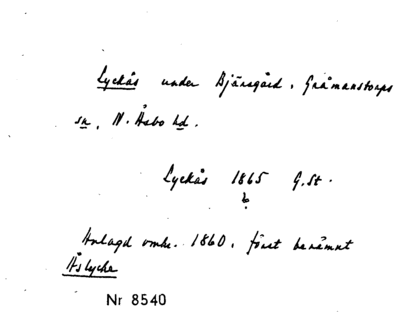 Lyckås under Bjärsgård, Gråmanstorps
sn, N. Åsbo hd.
Lyckås 1865 G.St.
b
Anlagd omkr. 1860, först benämnt
Åslycke
Nr 8540